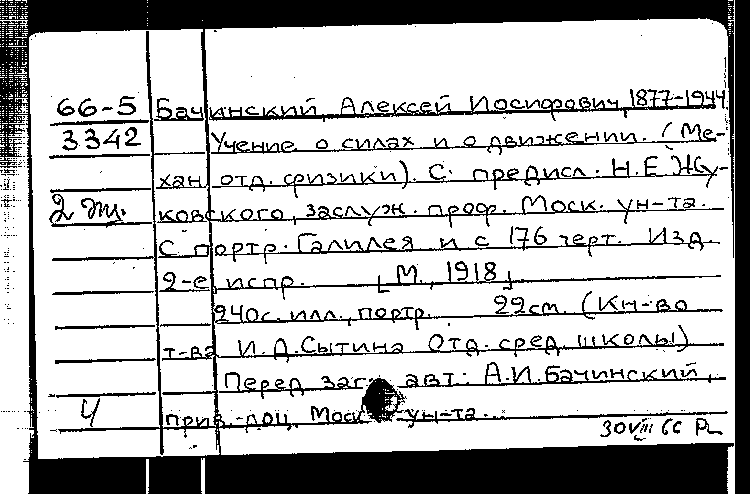 66-5 Бачинский, Алексей Иосифович, 1877-1944
3342 Учение о силах и о движении. (Ме-
хан. отд. физики). С предисл. Н.Е.Жу-
2 эк. ковского, заслуж. проф. Моск. ун-та.
С портр. Галилея и с 176 черт. Изд.
2-е, испр. [М., 1918]
240с. илл., портр. 22см. (Кн-во
т-ва И.Д.Сытина Отд. сред. школы)
Перед заг. авт: А.И.Бачинский,
4 прив.-доц. Моск. ун-та.
30 VIII 66